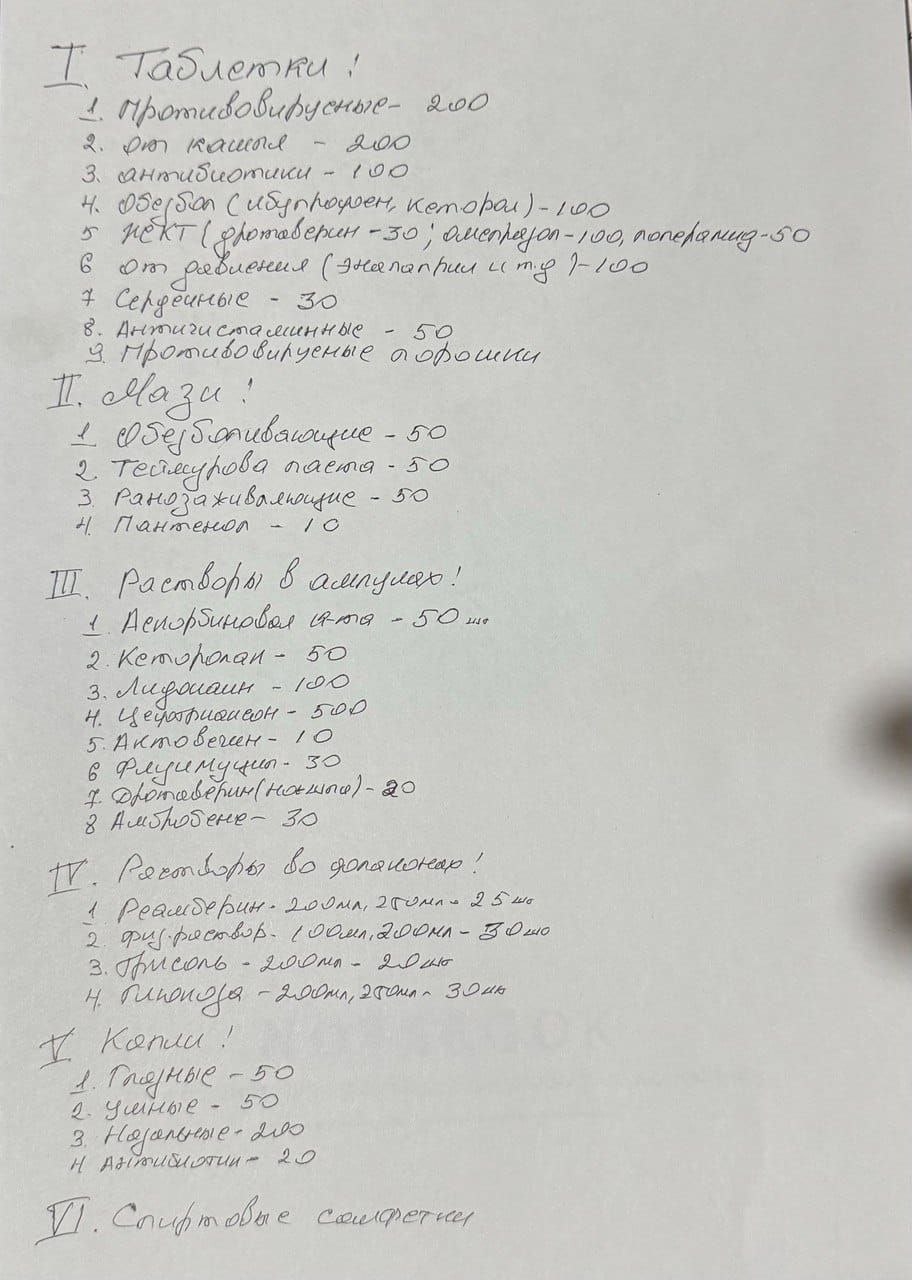 I. Таблетки!
1. Противовирусные - 200
2. От кашля - 200
3. Антибиотики - 100
4. Обезбол (ибупрофен, кеторол) - 100
5 ЖКТ (дротаверин - 30; омепразол - 100, лоперамид - 50
6 От давления (эналаприл и т.д) - 100
7 Сердечные - 30
8. Антигистаминные - 50
9. Противовирусные порошки
II. Мази!
1 Обезболивающие - 50
2. Теймурова паста - 50
3. Ранозаживляющие - 50
4. Пантенол - 10
III. Растворы в ампулах!
1. Аскорбиновая к-та - 50 шт
2. Кеторолак - 50
3. Лидокаин - 100
4. Цефтриаксон - 500
5. Актовегин - 10
6 Флуимуцил - 30
7. Дротаверин (но-шпа) - 20
8 Амбробене - 30
IV. Растворы во флаконах!
1 Реамберин - 200мл, 250мл - 25 шт
2. Физ.раствор - 100мл, 200мл - 30 шт
3. Трисоль - 200мл - 20 шт
4. Глюкоза - 200мл, 250мл - 30 шт
V Капли!
1. Глазные - 50
2. Ушные - 50
3. Назальные - 200
4 Антибиотик - 20
VI. Спиртовые салфетки